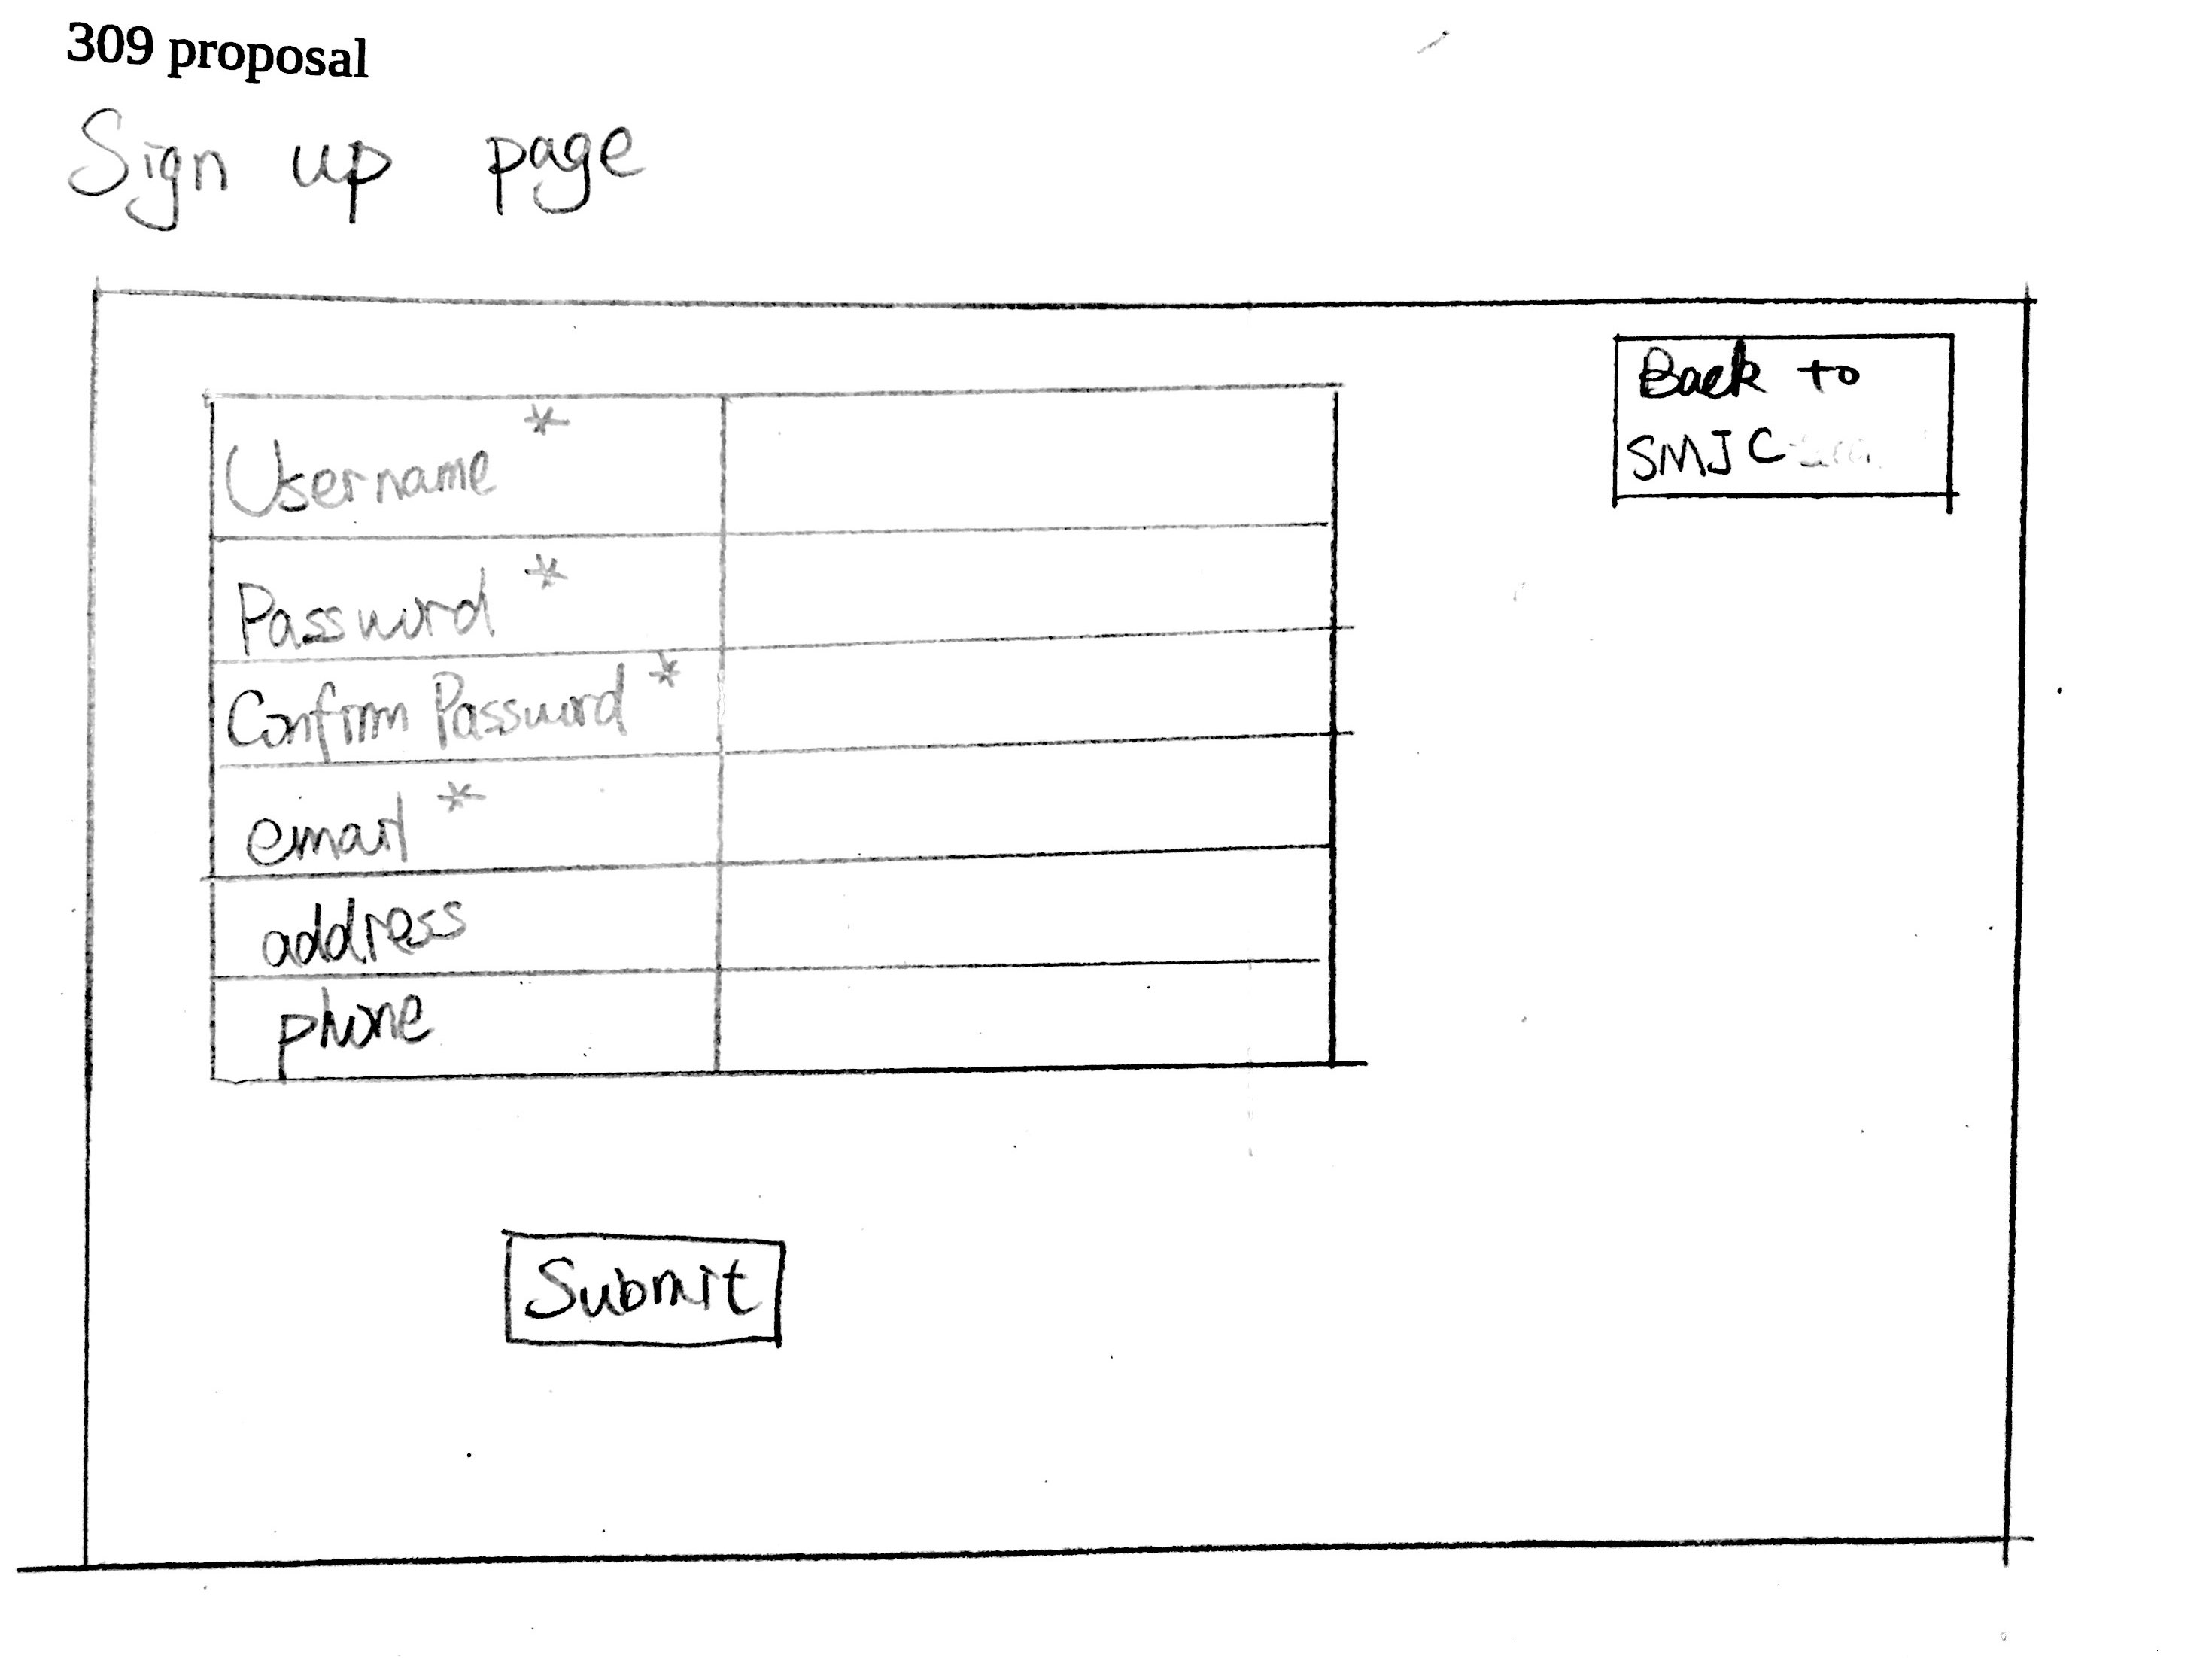 309 proposal
Sign up page
Back to
SMJC
Username *
Password *
Confirm Password *
email *
address
phone
Submit